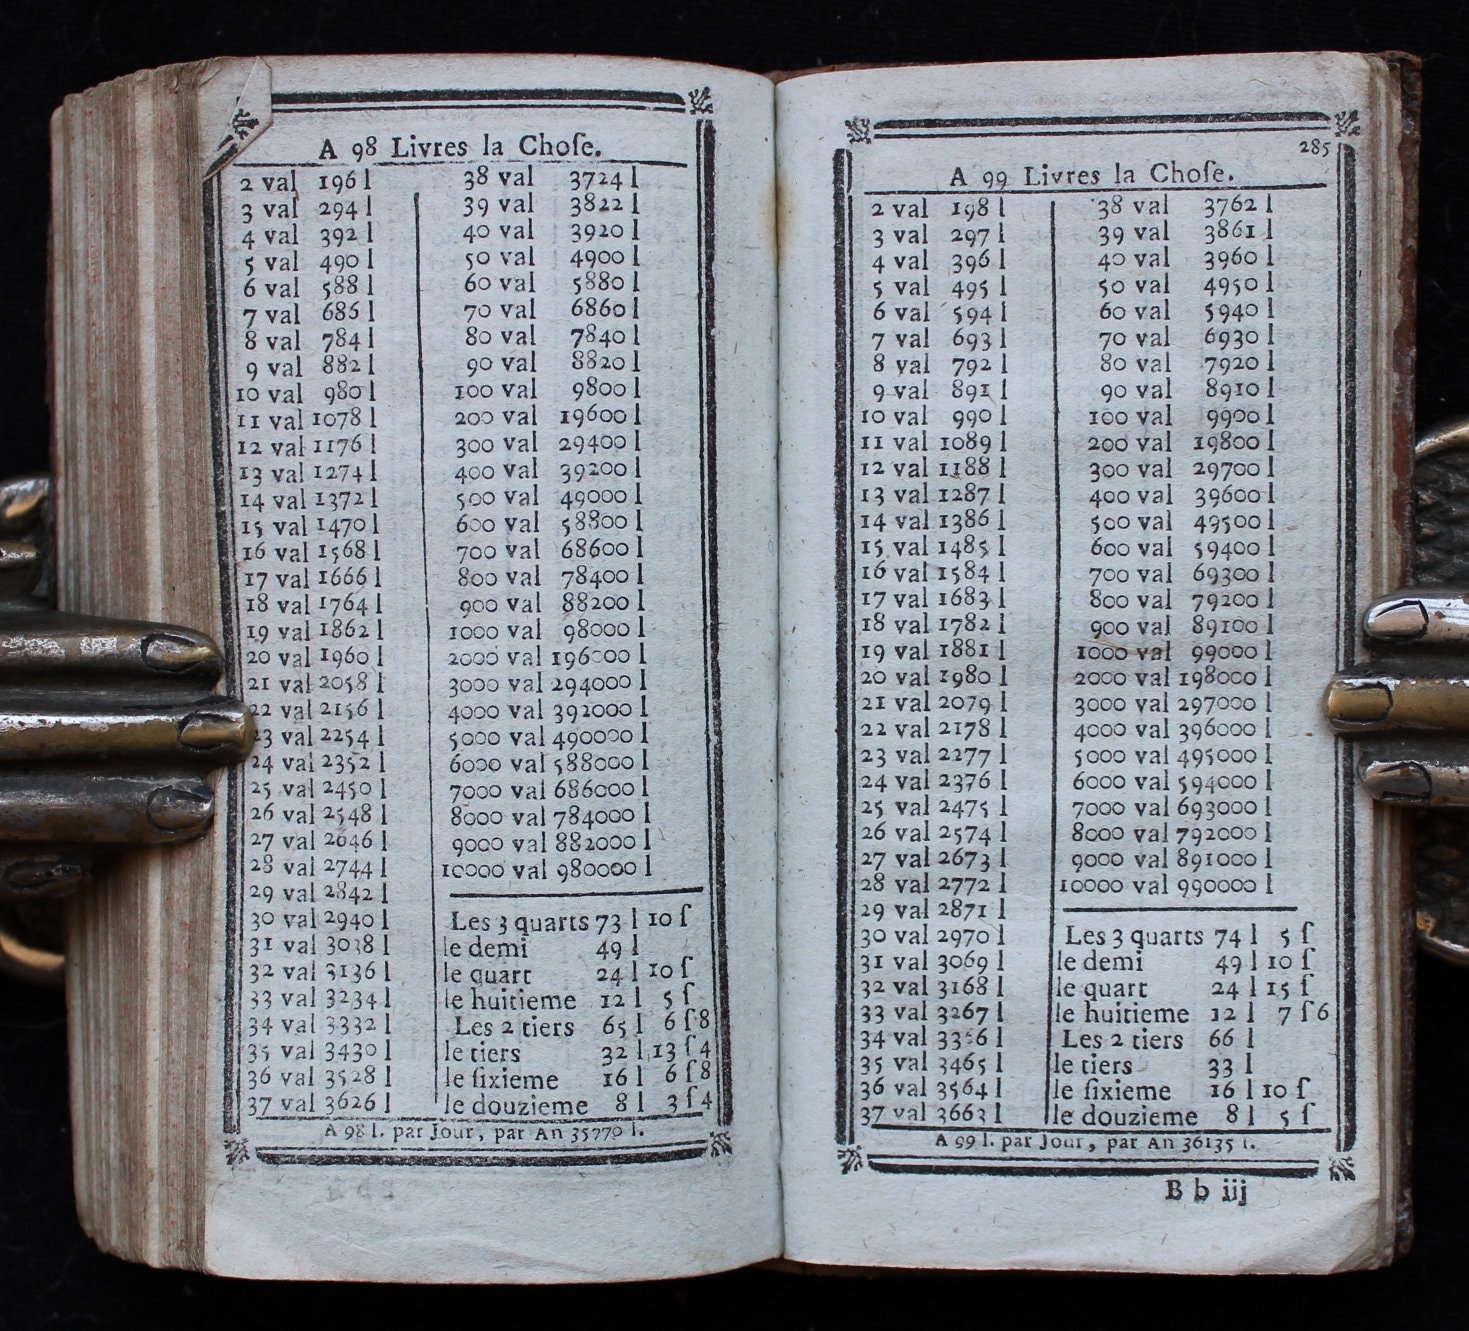 A 98 Livres la Choſe.
2 val 196 l
3 val 294 l
4 val 392 l
5 val 490 l
6 val 588 l
7 val 686 l
8 val 784 l
9 val 882 l
10 val 980 l
11 val 1078 l
12 val 1176 l
13 val 1274 l
14 val 1372 l
15 val 1470 l
16 val 1568 l
17 val 1666 l
18 val 1764 l
19 val 1862 l
20 val 1960 l
21 val 2058 l
22 val 2156 l
23 val 2254 l
24 val 2352 l
25 val 2450 l
26 val 2548 l
27 val 2646 l
28 val 2744 l
29 val 2842 l
30 val 2940 l
31 val 3038 l
32 val 3136 l
33 val 3234 l
34 val 3332 l
35 val 3430 l
36 val 3528 l
37 val 3626 l
38 val 3724 l
39 val 3822 l
40 val 3920 l
50 val 4900 l
60 val 5880 l
70 val 6860 l
80 val 7840 l
90 val 8820 l
100 val 9800 l
200 val 19600 l
300 val 29400 l
400 val 39200 l
500 val 49000 l
600 val 58800 l
700 val 68600 l
800 val 78400 l
900 val 88200 l
1000 val 98000 l
2000 val 196000 l
3000 val 294000 l
4000 val 392000 l
5000 val 490000 l
6000 val 588000 l
7000 val 686000 l
8000 val 784000 l
9000 val 882000 l
10000 val 980000 l
Les 3 quarts 73 l 10 ſ
le demi 49 l
le quart 24 l 10 ſ
le huitieme 12 l 5 ſ
Les 2 tiers 65 l 6 ſ 8
le tiers 32 l 13 ſ 4
le ſixieme 16 l 6 ſ 8
le douzieme 8 l 3 ſ 4
A 98 l. par Jour, par An 35770 l.
285
A 99 Livres la Choſe.
2 val 198 l
3 val 297 l
4 val 396 l
5 val 495 l
6 val 594 l
7 val 693 l
8 val 792 l
9 val 891 l
10 val 990 l
11 val 1089 l
12 val 1188 l
13 val 1287 l
14 val 1386 l
15 val 1485 l
16 val 1584 l
17 val 1683 l
18 val 1782 l
19 val 1881 l
20 val 1980 l
21 val 2079 l
22 val 2178 l
23 val 2277 l
24 val 2376 l
25 val 2475 l
26 val 2574 l
27 val 2673 l
28 val 2772 l
29 val 2871 l
30 val 2970 l
31 val 3069 l
32 val 3168 l
33 val 3267 l
34 val 3366 l
35 val 3465 l
36 val 3564 l
37 val 3663 l
38 val 3762 l
39 val 3861 l
40 val 3960 l
50 val 4950 l
60 val 5940 l
70 val 6930 l
80 val 7920 l
90 val 8910 l
100 val 9900 l
200 val 19800 l
300 val 29700 l
400 val 39600 l
500 val 49500 l
600 val 59400 l
700 val 69300 l
800 val 79200 l
900 val 89100 l
1000 val 99000 l
2000 val 198000 l
3000 val 297000 l
4000 val 396000 l
5000 val 495000 l
6000 val 594000 l
7000 val 693000 l
8000 val 792000 l
9000 val 891000 l
10000 val 990000 l
Les 3 quarts 74 l 5 ſ
le demi 49 l 10 ſ
le quart 24 l 15 ſ
le huitieme 12 l 7 ſ 6
Les 2 tiers 66 l
le tiers 33 l
le ſixieme 16 l 10 ſ
le douzieme 8 l 5 ſ
A 99 l. par Jour, par An 36135 l.
B b iij